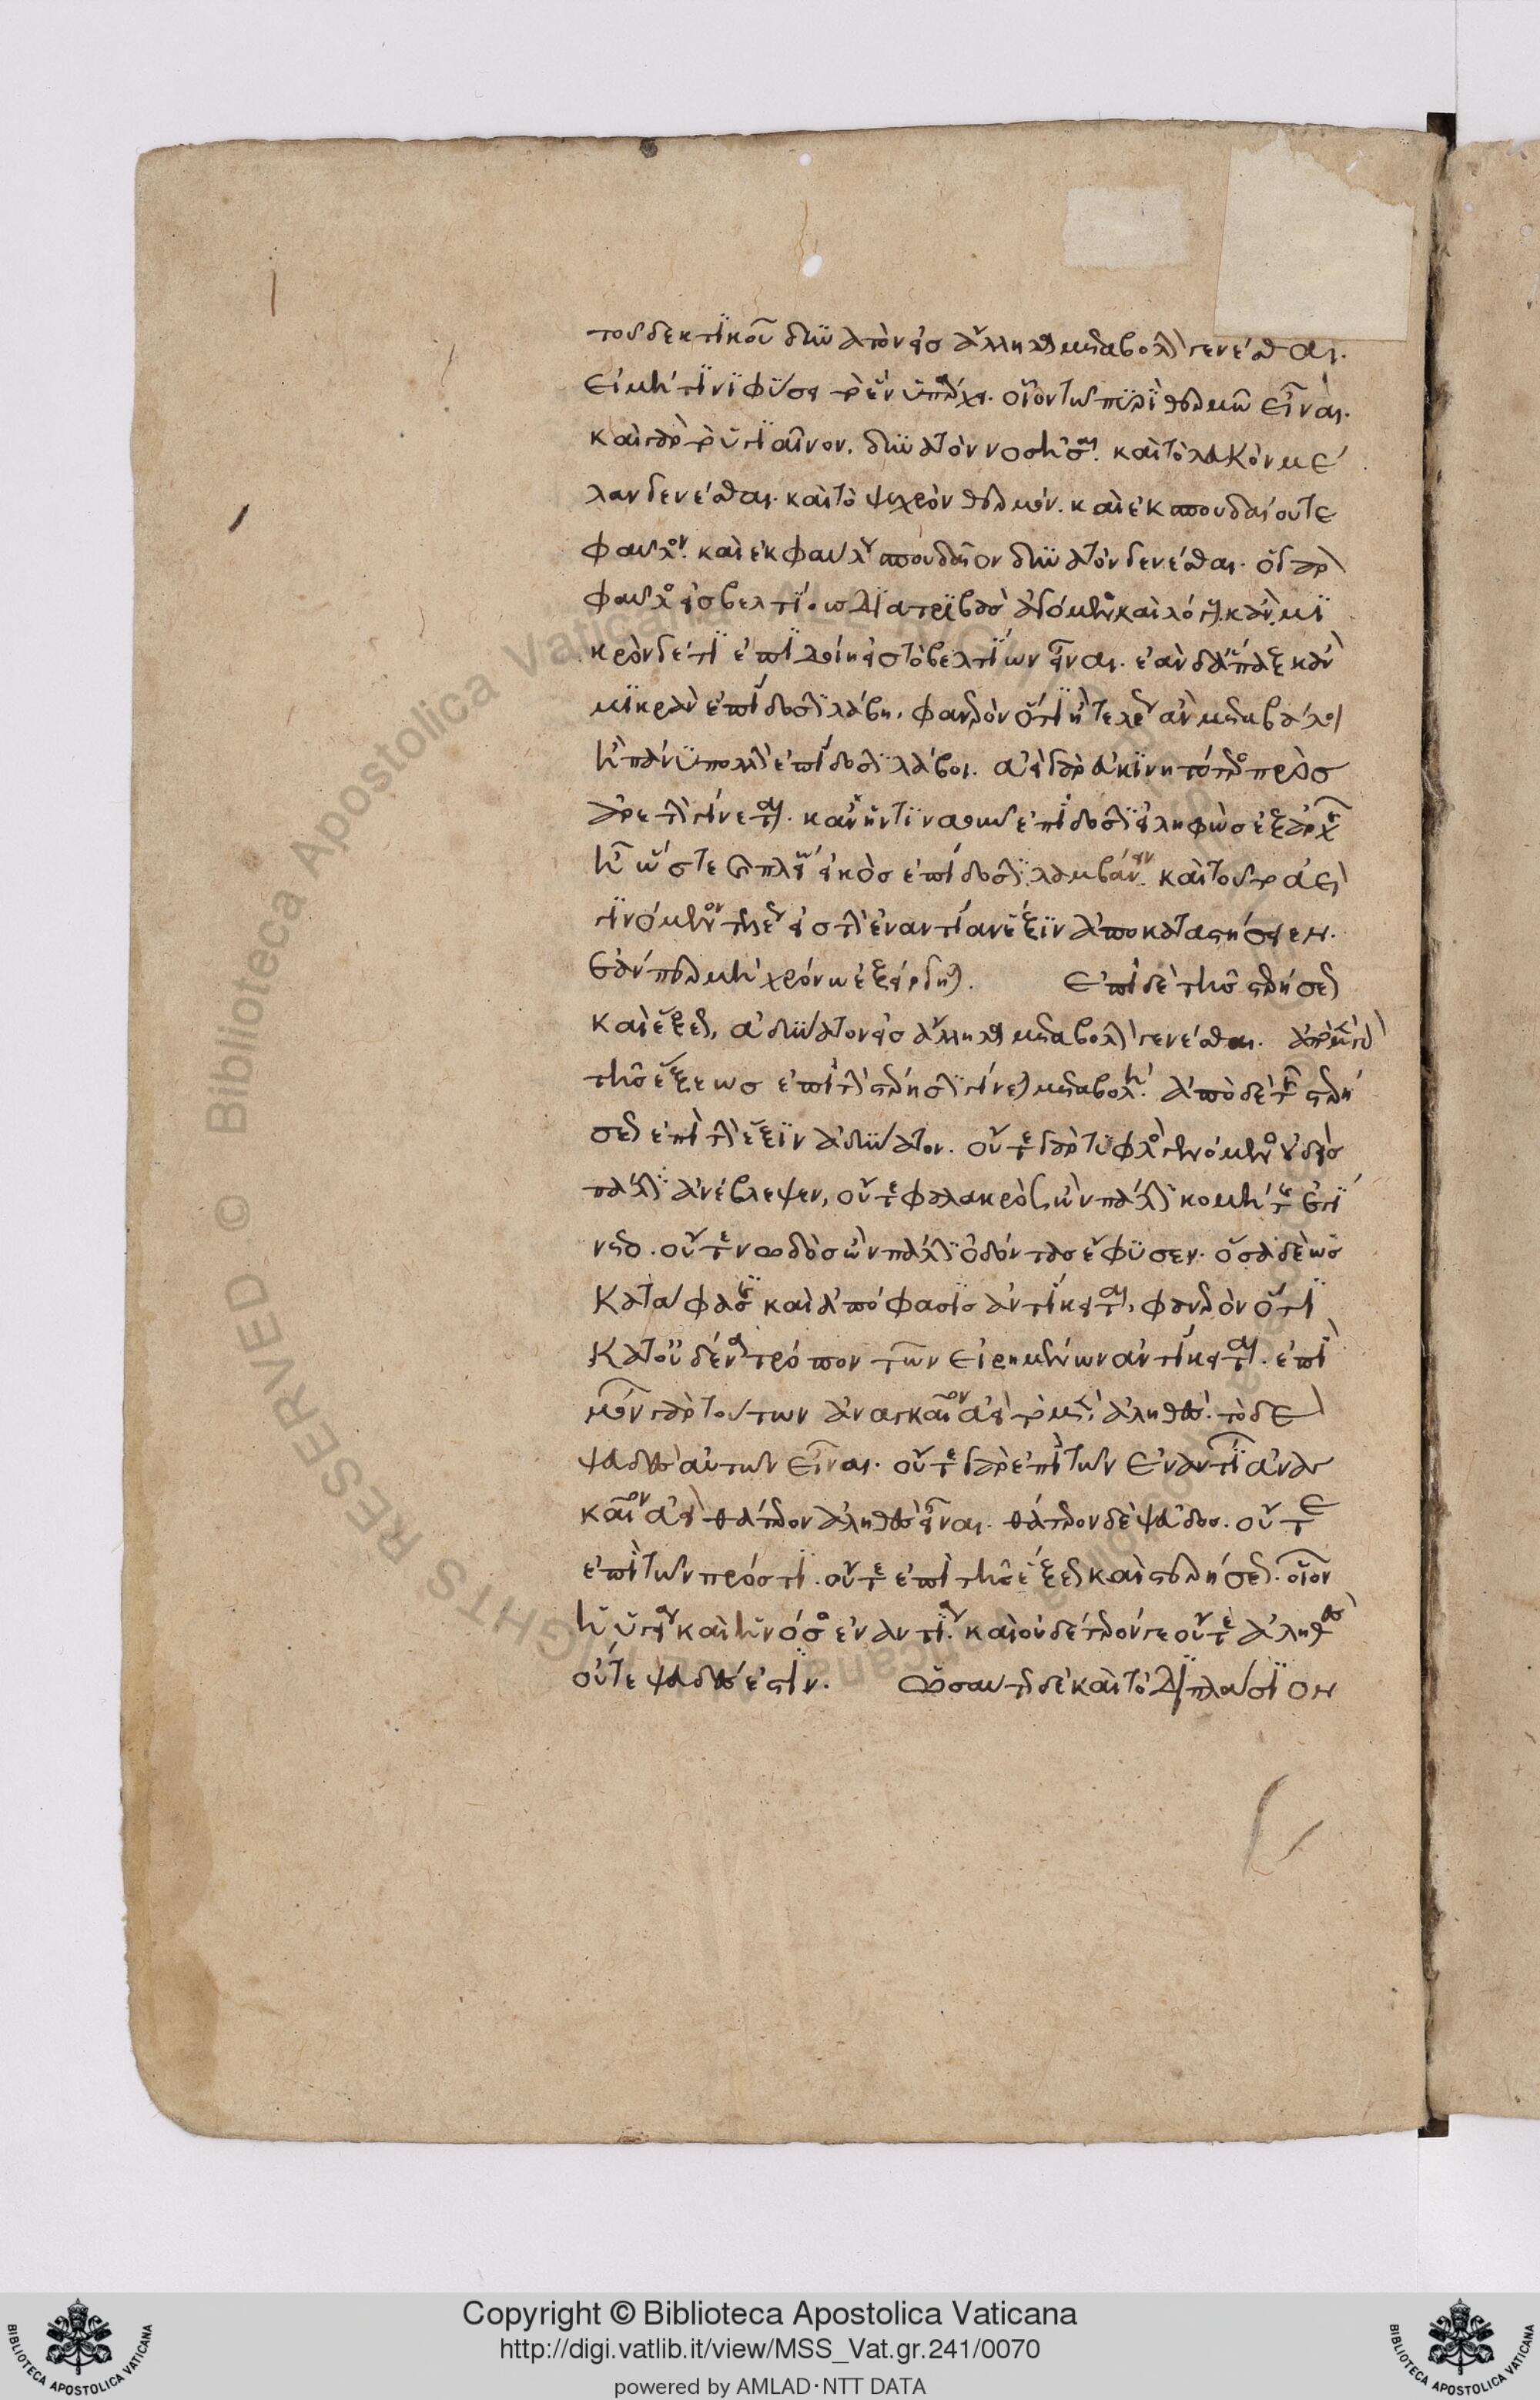 τοῦ δεκτικοῦ δυνατὸν εἰς ἄλληλα μεταβολὴν γενέσθαι.
εἰ μή τινι φύσει τὸ ἓν ὑπάρχει. οἷον τῶ πυρὶ θερμῶ εἶναι.
καὶ γὰρ τὸ ὑγιαῖνον, δυνατὸν νοσῆσαι. καὶ τὸ λευκὸν μέ
λαν γενέσθαι. καὶ τὸ ψυχρὸν θερμόν. καὶ ἐκ σπουδαίου τε
φαῦλον. καὶ ἐκ φαύλου σπουδαῖον δυνατὸν γενέσθαι. ὁ γὰρ
φαῦλος εἰς βελτίους διατριβὰς ἀγόμενος καὶ λόγους. κἂν μι
κρὸν δέ τι ἐπιδοίη εἰς τὸ βελτίων εἶναι. ἐὰν δὲ ἅπαξ κἂν
μικρὰν ἐπίδοσιν λάβη, φανερὸν ὅτι ἢ τελείως ἂν μεταβάλοι
ἢ πάνυ πολλὴν ἐπίδοσιν λάβοι. ἀεὶ γὰρ εὐκινητότερος πρὸς
ἀρετὴν γίνεται. κἂν ἡντιναοῦν ἐπίδοσιν εἰληφὼς ἐξ ἀρχῆς
ἦ ὥστε καὶ πλείω εἰκὸς ἐπίδοσιν λαμβάνειν. καὶ τοῦτο ἀεὶ
γινόμενον τελείως εἰς τὴν ἐναντίαν ἕξιν ἀποκατίστησιν.
ἐάνπερ μὴ χρόνω ἐξείργηται. Ἐπὶ δὲ τῆς στερήσεως
καὶ ἕξεως, ἀδύνατον εἰς ἄλληλα μεταβολὴν γενέσθαι. ἀπὸ μὲν γὰρ
τῆς ἕξεως ἐπὶ τὴν στέρησιν γίνεται μεταβολή. ἀπὸ δὲ τῆς στερή
σεως ἐπὶ τὴν ἕξιν ἀδύνατον. οὔτε γὰρ τυφλὸς γενόμενός τις
πάλιν ἀνέβλεψεν, οὔτε φαλακρὸς ὢν πάλιν κομήτης ἐγέ
νετο. οὔτε νωδὸς ὢν πάλιν ὀδόντας ἔφυσεν. ὅσα δὲ ὡς
κατάφασις καὶ ἀπόφασις ἀντίκειται, φανερὸν ὅτι
κατ' οὐδένα τρόπον τῶν εἰρημένων ἀντίκειται. ἐπὶ
μόνων γὰρ τούτων ἀναγκαῖον ἀεὶ τὸ μὲν ἀληθὲς. τὸ δὲ
ψεῦδος αὐτῶν εἶναι. οὔτε γὰρ ἐπὶ τῶν ἐναντίων ἀναγ
καῖον ἀεὶ θάτερον ἀληθὲς εἶναι. θάτερον δὲ ψεῦδος. οὔτε
ἐπὶ τῶν πρός τι. οὔτε ἐπὶ τῆς ἕξεως καὶ στερήσεως. οἷον
ἡ ὑγεία καὶ ἡ νόσος ἐναντία. καὶ οὐδέτερόν γε οὔτε ἀληθὲς
οὔτε ψεῦδος ἐστίν. Ὡσαύτως δὲ καὶ τὸ διπλάσιον